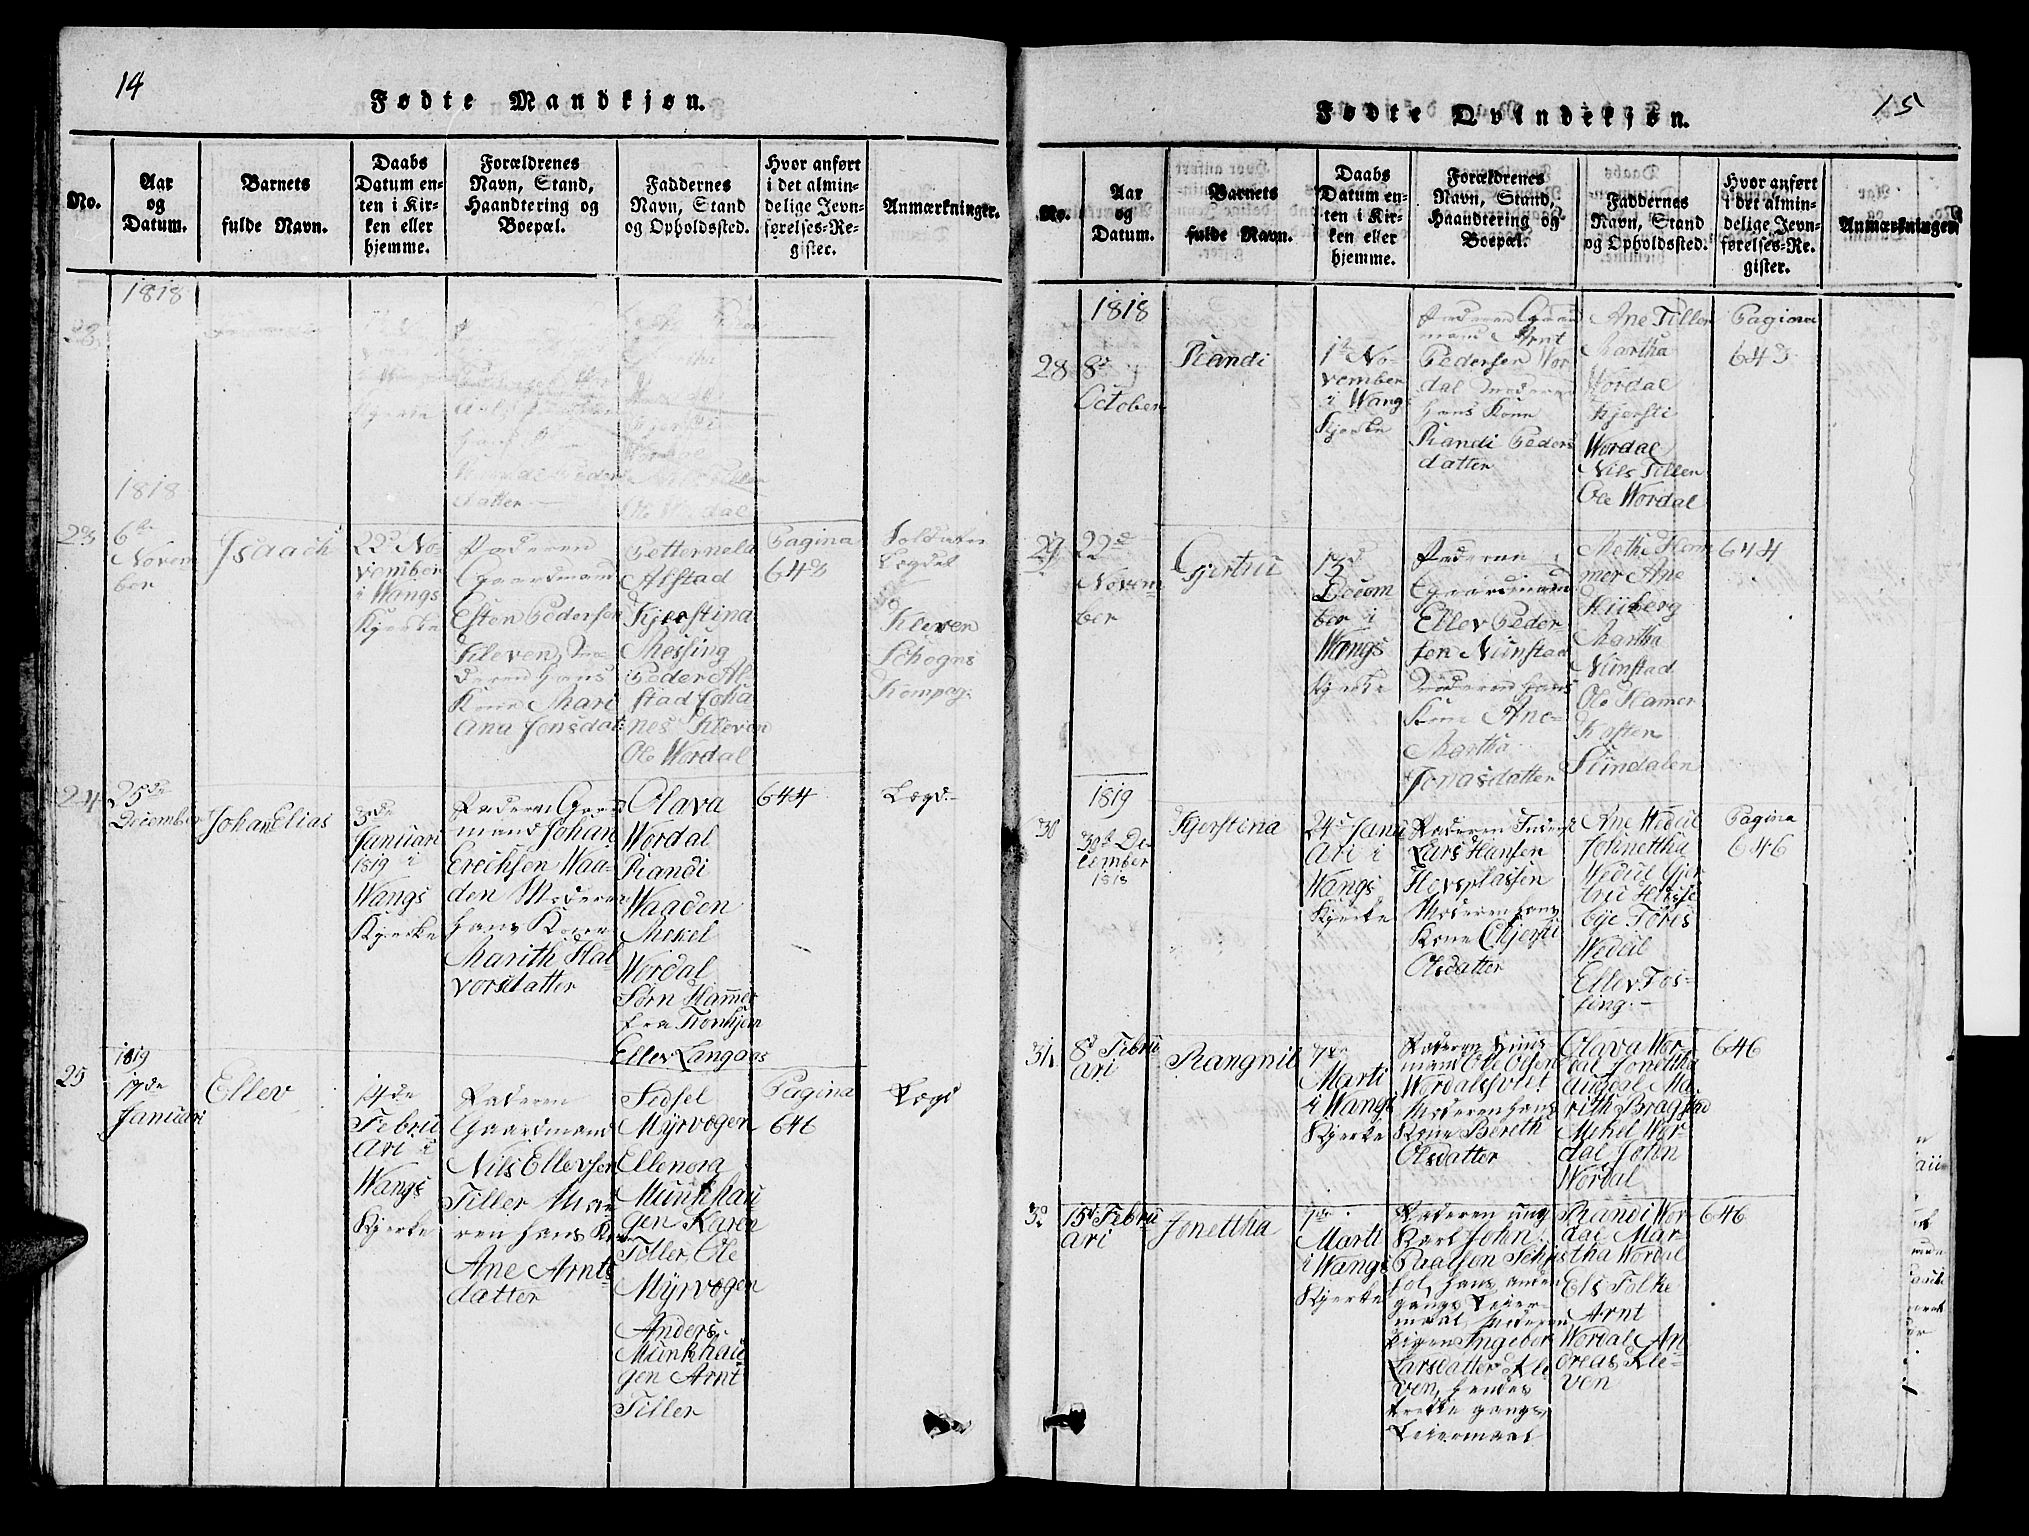 14
Fødte Mandkjøn.
No.
Aar
og
Datum.
Barnets
fulde Navn.
Daabs
Datum en-
ten i Kir-
ken eller
hjemme.
Forældrenes
Navn, Stand,
Haandtering og
Boepæl.
Faddernes
Navn, Stand
og Opholdssted.
Hvor anført
i det almin-
delige Jevn-
førelses-Re-
gister.
Anmærkninger.
1818
1818
23
6te
Novem
ber
Isaach
22d No-
vember
i Wangs
Kjerke
Faderen
Gaardmand
Esten Pedersen
Kleven, Mo-
deren hans
Kone Mari
Ana Jonsdat
Petternela
Alstad
Kjerstina
Messing
Peder Al-
stad Joha
nes Kleven
Ole Wordal
Pagina
643
Soldater
Lægdet
Kleven
Schogns
Kompag.
24
25de
December
Johan Elias
3de
Januari
1819 i
Wangs
Kjerke
Faderen Gaard
mand Johan
Erichsen Waa-
den Moderen
hans Kone
Marith Hal
vorsdatter
Olava
Wordal
Randi
Waaden
Mekel
Wordal
Sørn Hammer
fra Tronhjem
Ellev Langaas
644
Lægd.
1819
25
17de
Januari
Ellev
14de
Febru
ari i
Wangs
Kjerke
Faderen
Gaardmand
Nils Ellevsen
Tiller Mode
ren hans Kone
Ane Arnts
datter
Sidsel
Myrvogen
Ellenora
Munkhau
gen Karen
Tiller, Ole
Myrvogen
Anders
Munkhau
gen Arnt
Tiller
Pagina
646
Lægd
15
Fødte Qvindekjøn.
No.
Aar
og
Datum.
Barnets
fulde Navn.
Daabs
Datum en-
ten i Kir-
ken eller
hjemme.
Forældrenes
Navn, Stand,
Haandtering og
Boepæl.
Faddernes
Navn, Stand
og Opholdssted.
Hvor anført
i det almin-
delige Jevn-
førelses-Re-
gister.
Anmærkninger
1818
28
8de
October
Randi
1te No-
vember
i Wangs
Kjerke
Faderen Gaard
mand Arnt
Pedersen Wor
dal Moderen
hans Kone
Randi Peders
datter
Ane Tiller
Martha
Wordal
Kjersti
Wordal
Nils Tiller
Ole Wordal
Pagina
643
29
22de
Novem
ber
Gjertru
13d
Decem
ber i
Wangs
Kjerke
Faderen
Gaardmand
Ellev Peder-
sen Nunstad
Moderen hans
Kone Ane
Martha
Jonasdatter
Methe Ham
mer Ane
Huberg
Martha
Nunstad
Ole Hammer
Kasten
Sundalen
644
1819
30
30te De
cember
1818
Kjerstina
24d Janu
ari i
Wangs
Kjerke
Faderen
Lars Hansen
Hovsplassen
Moderen hans
Kone Chjersti
Olsdatter
Ane Wedul
Johnettha
Wedul Gjer
tru Hosse
bye Tøris
Wedul
Ellev Fos-
sing
Pagina
646
31
8d Febru
ari
Rangnil
7de
Marti
i Wangs
Kjerke
Faderen Huus
mand Ole Olsen
Wordalshvlet
Moderen hans
Kone Bereth
Olsdatter
Olava Wor-
dal Jonettha
Augdal Ma-
rith Bragstad
Mikel Wor-
dal John
Wordal
646
32
15d Febru
ari
Jonettha
7de
Marti
i Wangs
Kjerke
Faderen ung
Karl John
Paalsen
hans anden
gangs Leier-
maal Moderen
Pigen Ingebor
Larsdatter Kle
ven, hendes
trette gangs
Leiermaal
Randi Wor
dal Mar-
tha Wordal
Els Folke
Arnt
Wordal An
dreas Kle-
ven
646